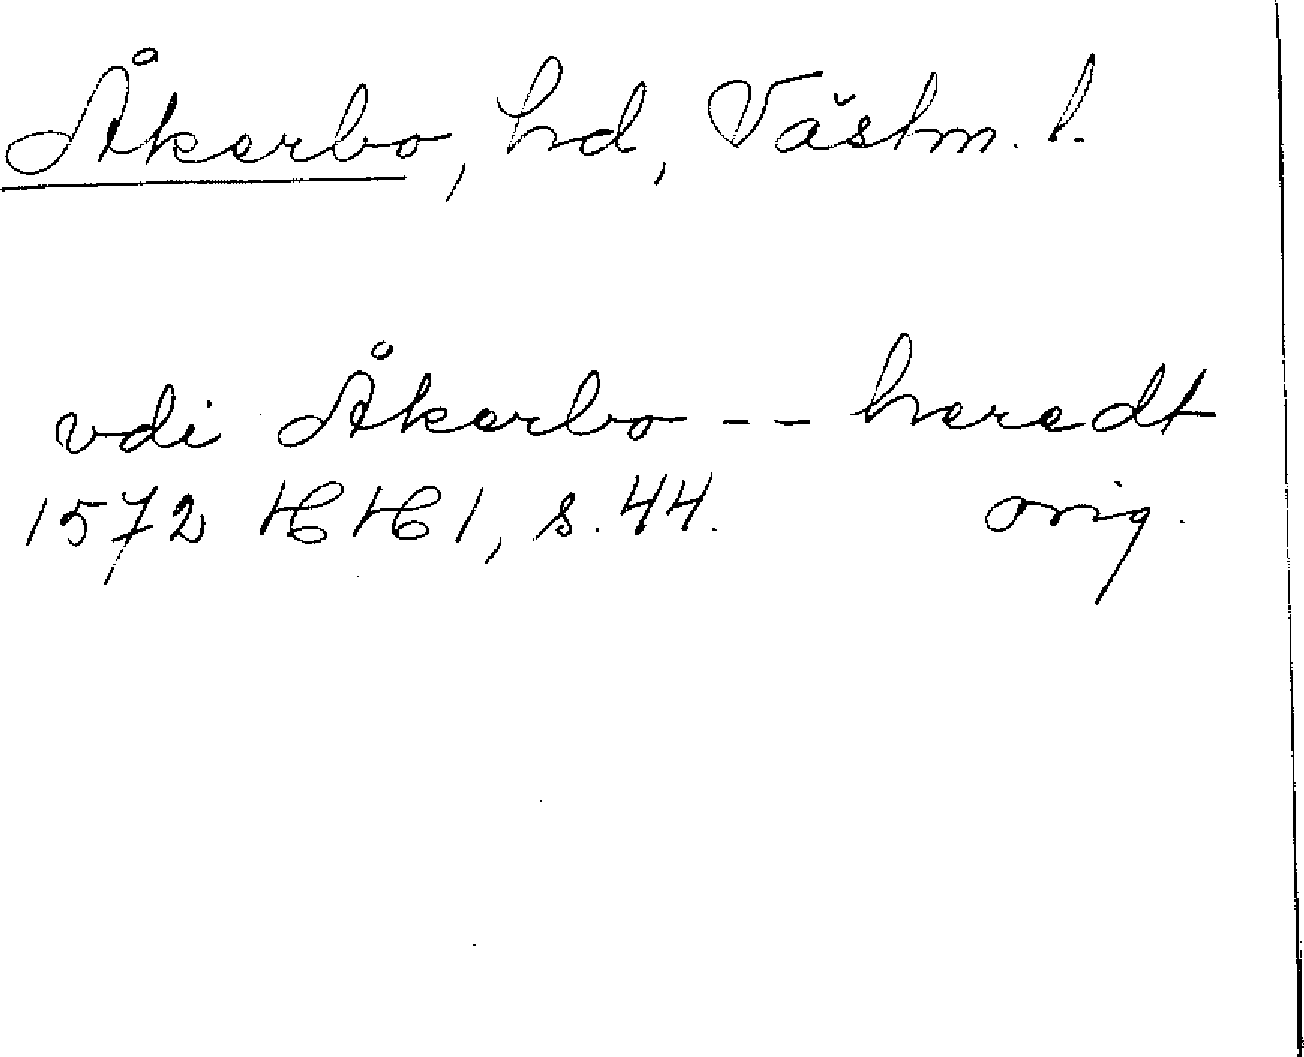 Åkerbo, hd, Västm. l.
vdi Åkerbo -- heredt
1572 HH 1, s. 44. orig.